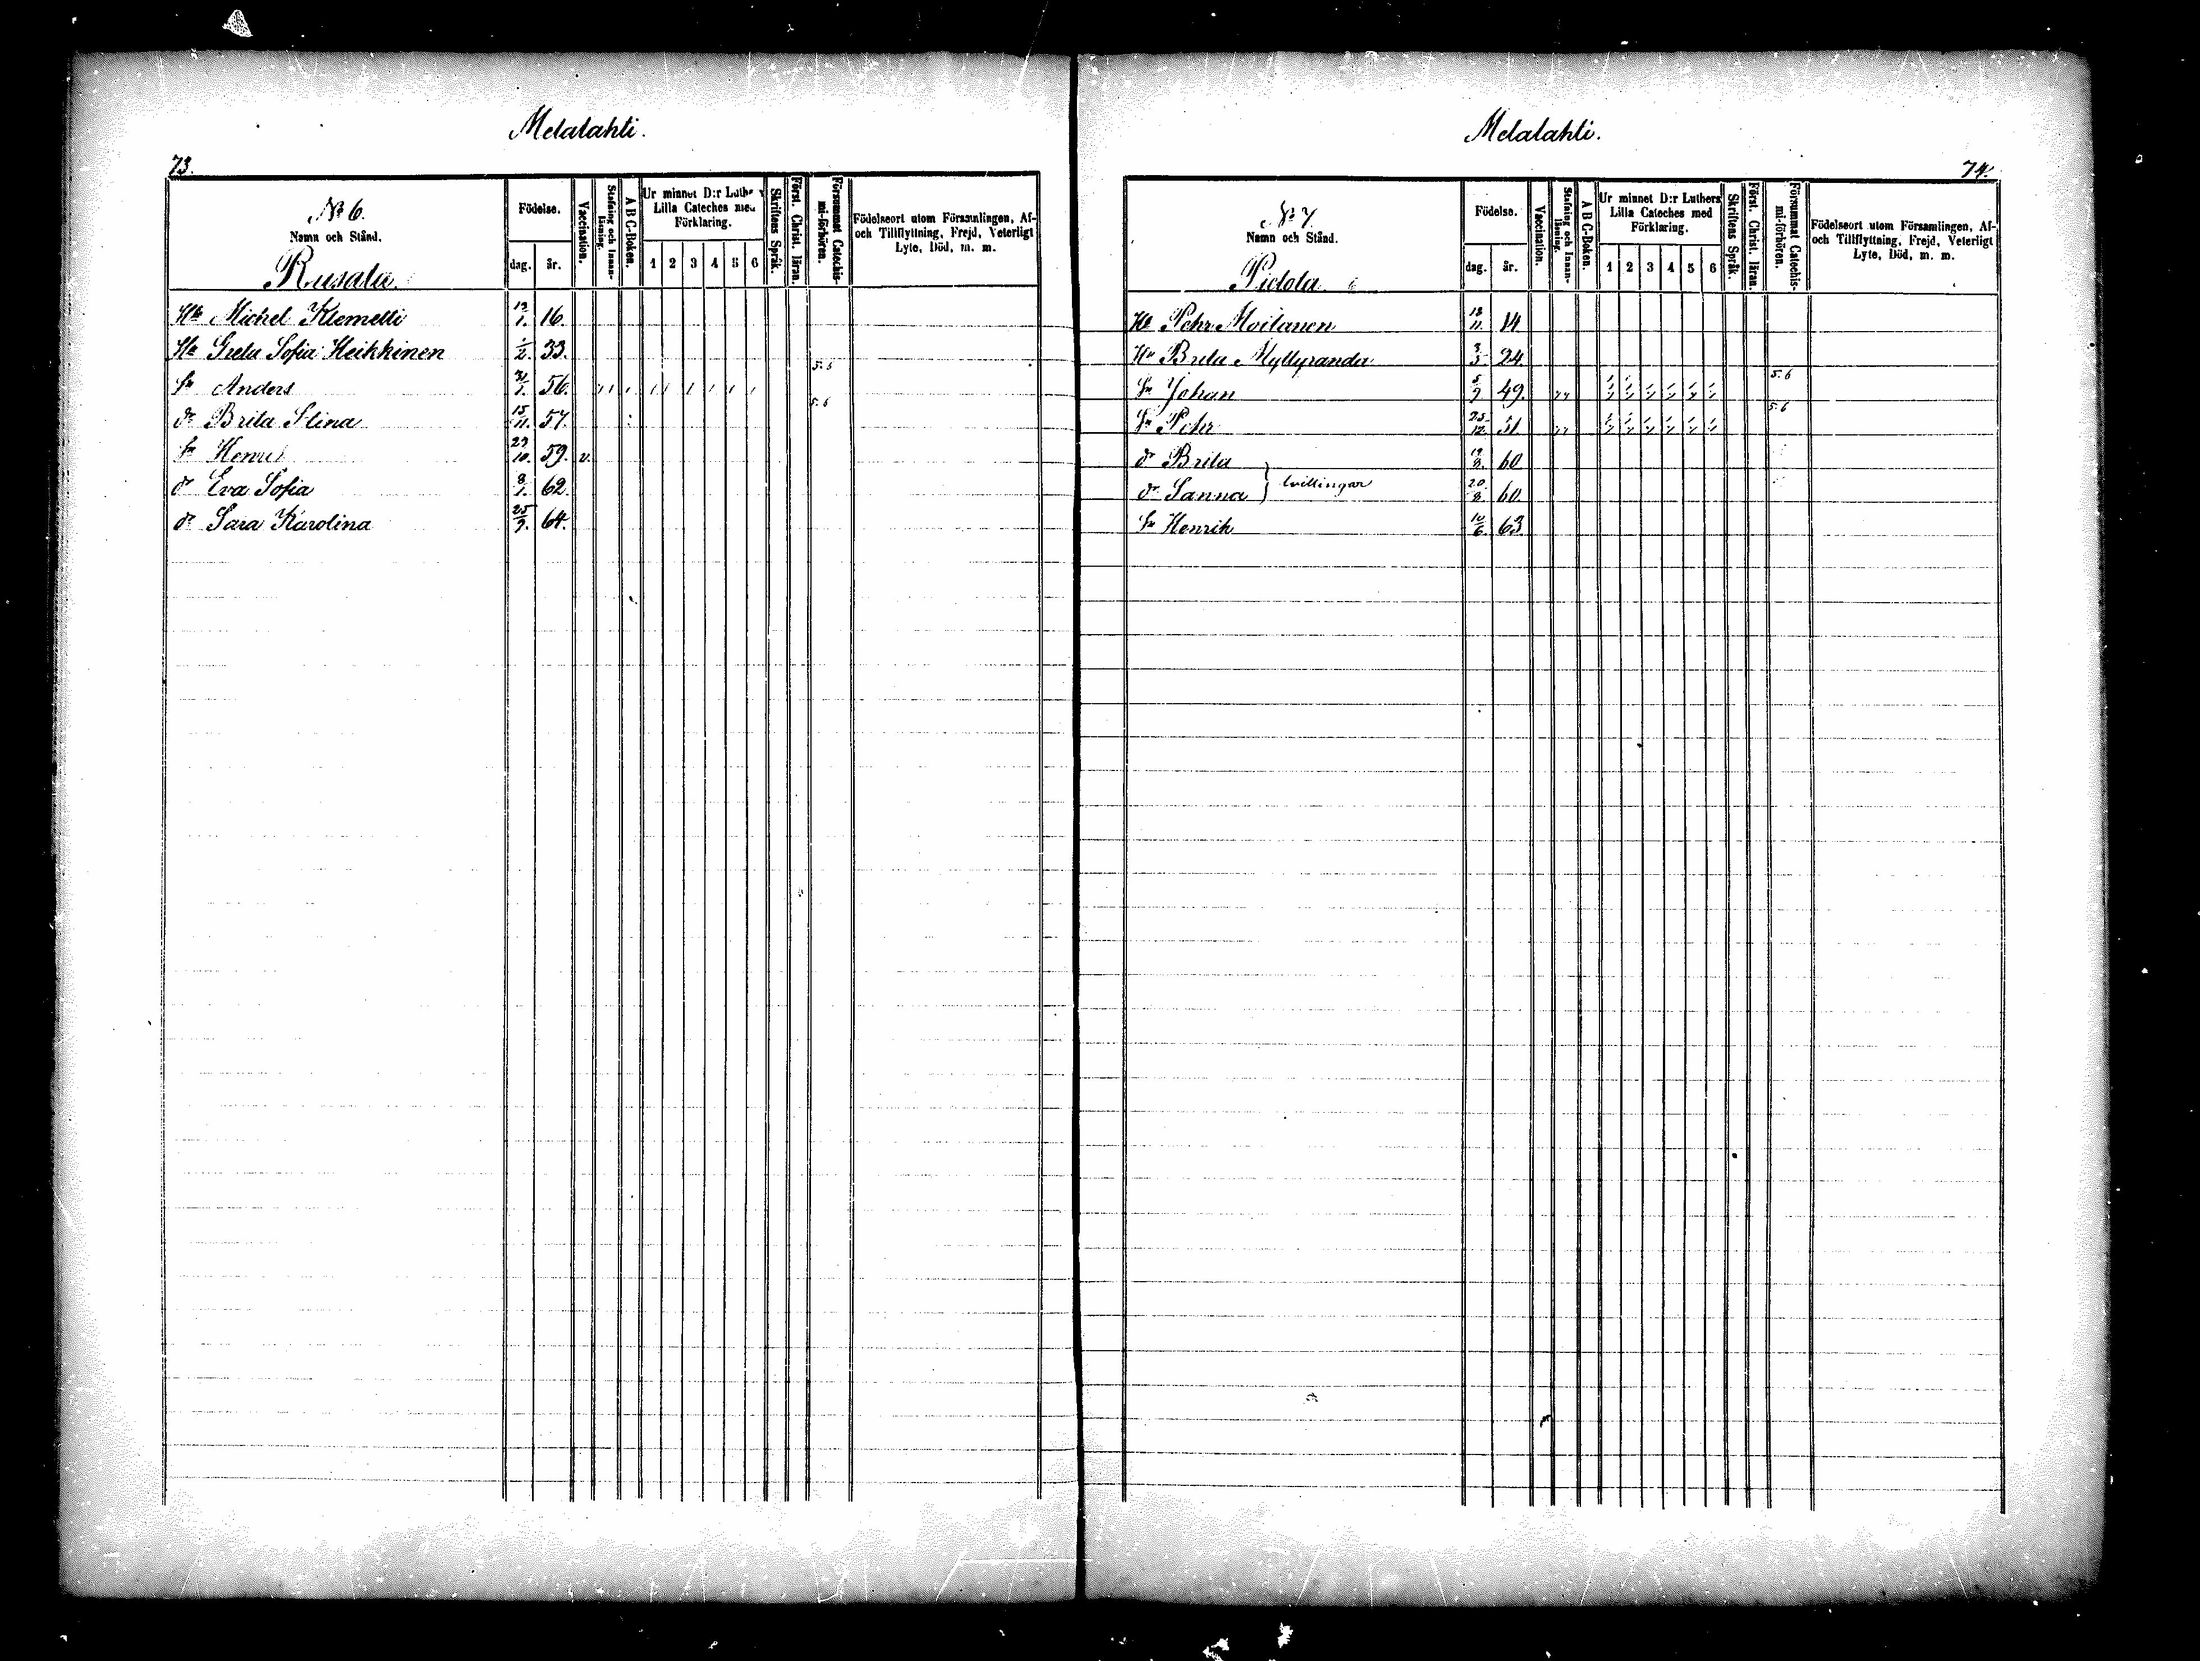 Melalahti.
73.
No 6.
Namn och Stånd.
Rusala
Födelse.
dag. år.
Vaccination.
Stafning och Innanläsning.
A B C-Boken.
Ur minnet D:r Luthers
Lilla Cateches med
Förklaring.
1 2 3 4 5 6
Skriftens Språk.
Först. Christ. läran.
Försummat Catechismi-förhören.
Födelseort utom Församlingen, Af-
och Tillflyttning, Frejd, Veterligt
Lyte, Död, m. m.
Michel Klemetti 12/1. 16.
Greta Sofia Heikkinen 1/2. 33.
Sn Anders 31/1. 56. 5.6
dr Brita Stina 15/11. 57. 5.6
Sn 29/10. 59. v.
dr Eva Sofia 8/1. 62
dr Sara Karolina 25/7. 64.
Melalahti.
74.
No 7.
Namn och Stånd.
Pidola
Födelse.
dag. år.
Vaccination.
Stafning och Innanläsning.
A B C-Boken.
Ur minnet D:r Luthers
Lilla Cateches med
Förklaring.
1 2 3 4 5 6
Skriftens Språk.
Först. Christ. läran.
Försummat Catechismi-förhören.
Födelseort utom Församlingen, Af-
och Tillflyttning, Frejd, Veterligt
Lyte, Död, m. m.
Pehr Moilanen 18/11. 14
Brita Myllyranda 3/5 24.
Sn Johan 5/9 49. 5.6
Sn Pehr 25/12. 51 5.6
dr Brita 19/8. 60
dr Sanna } tvillingar 20/8. 60
Sn Henrik 10/6. 63